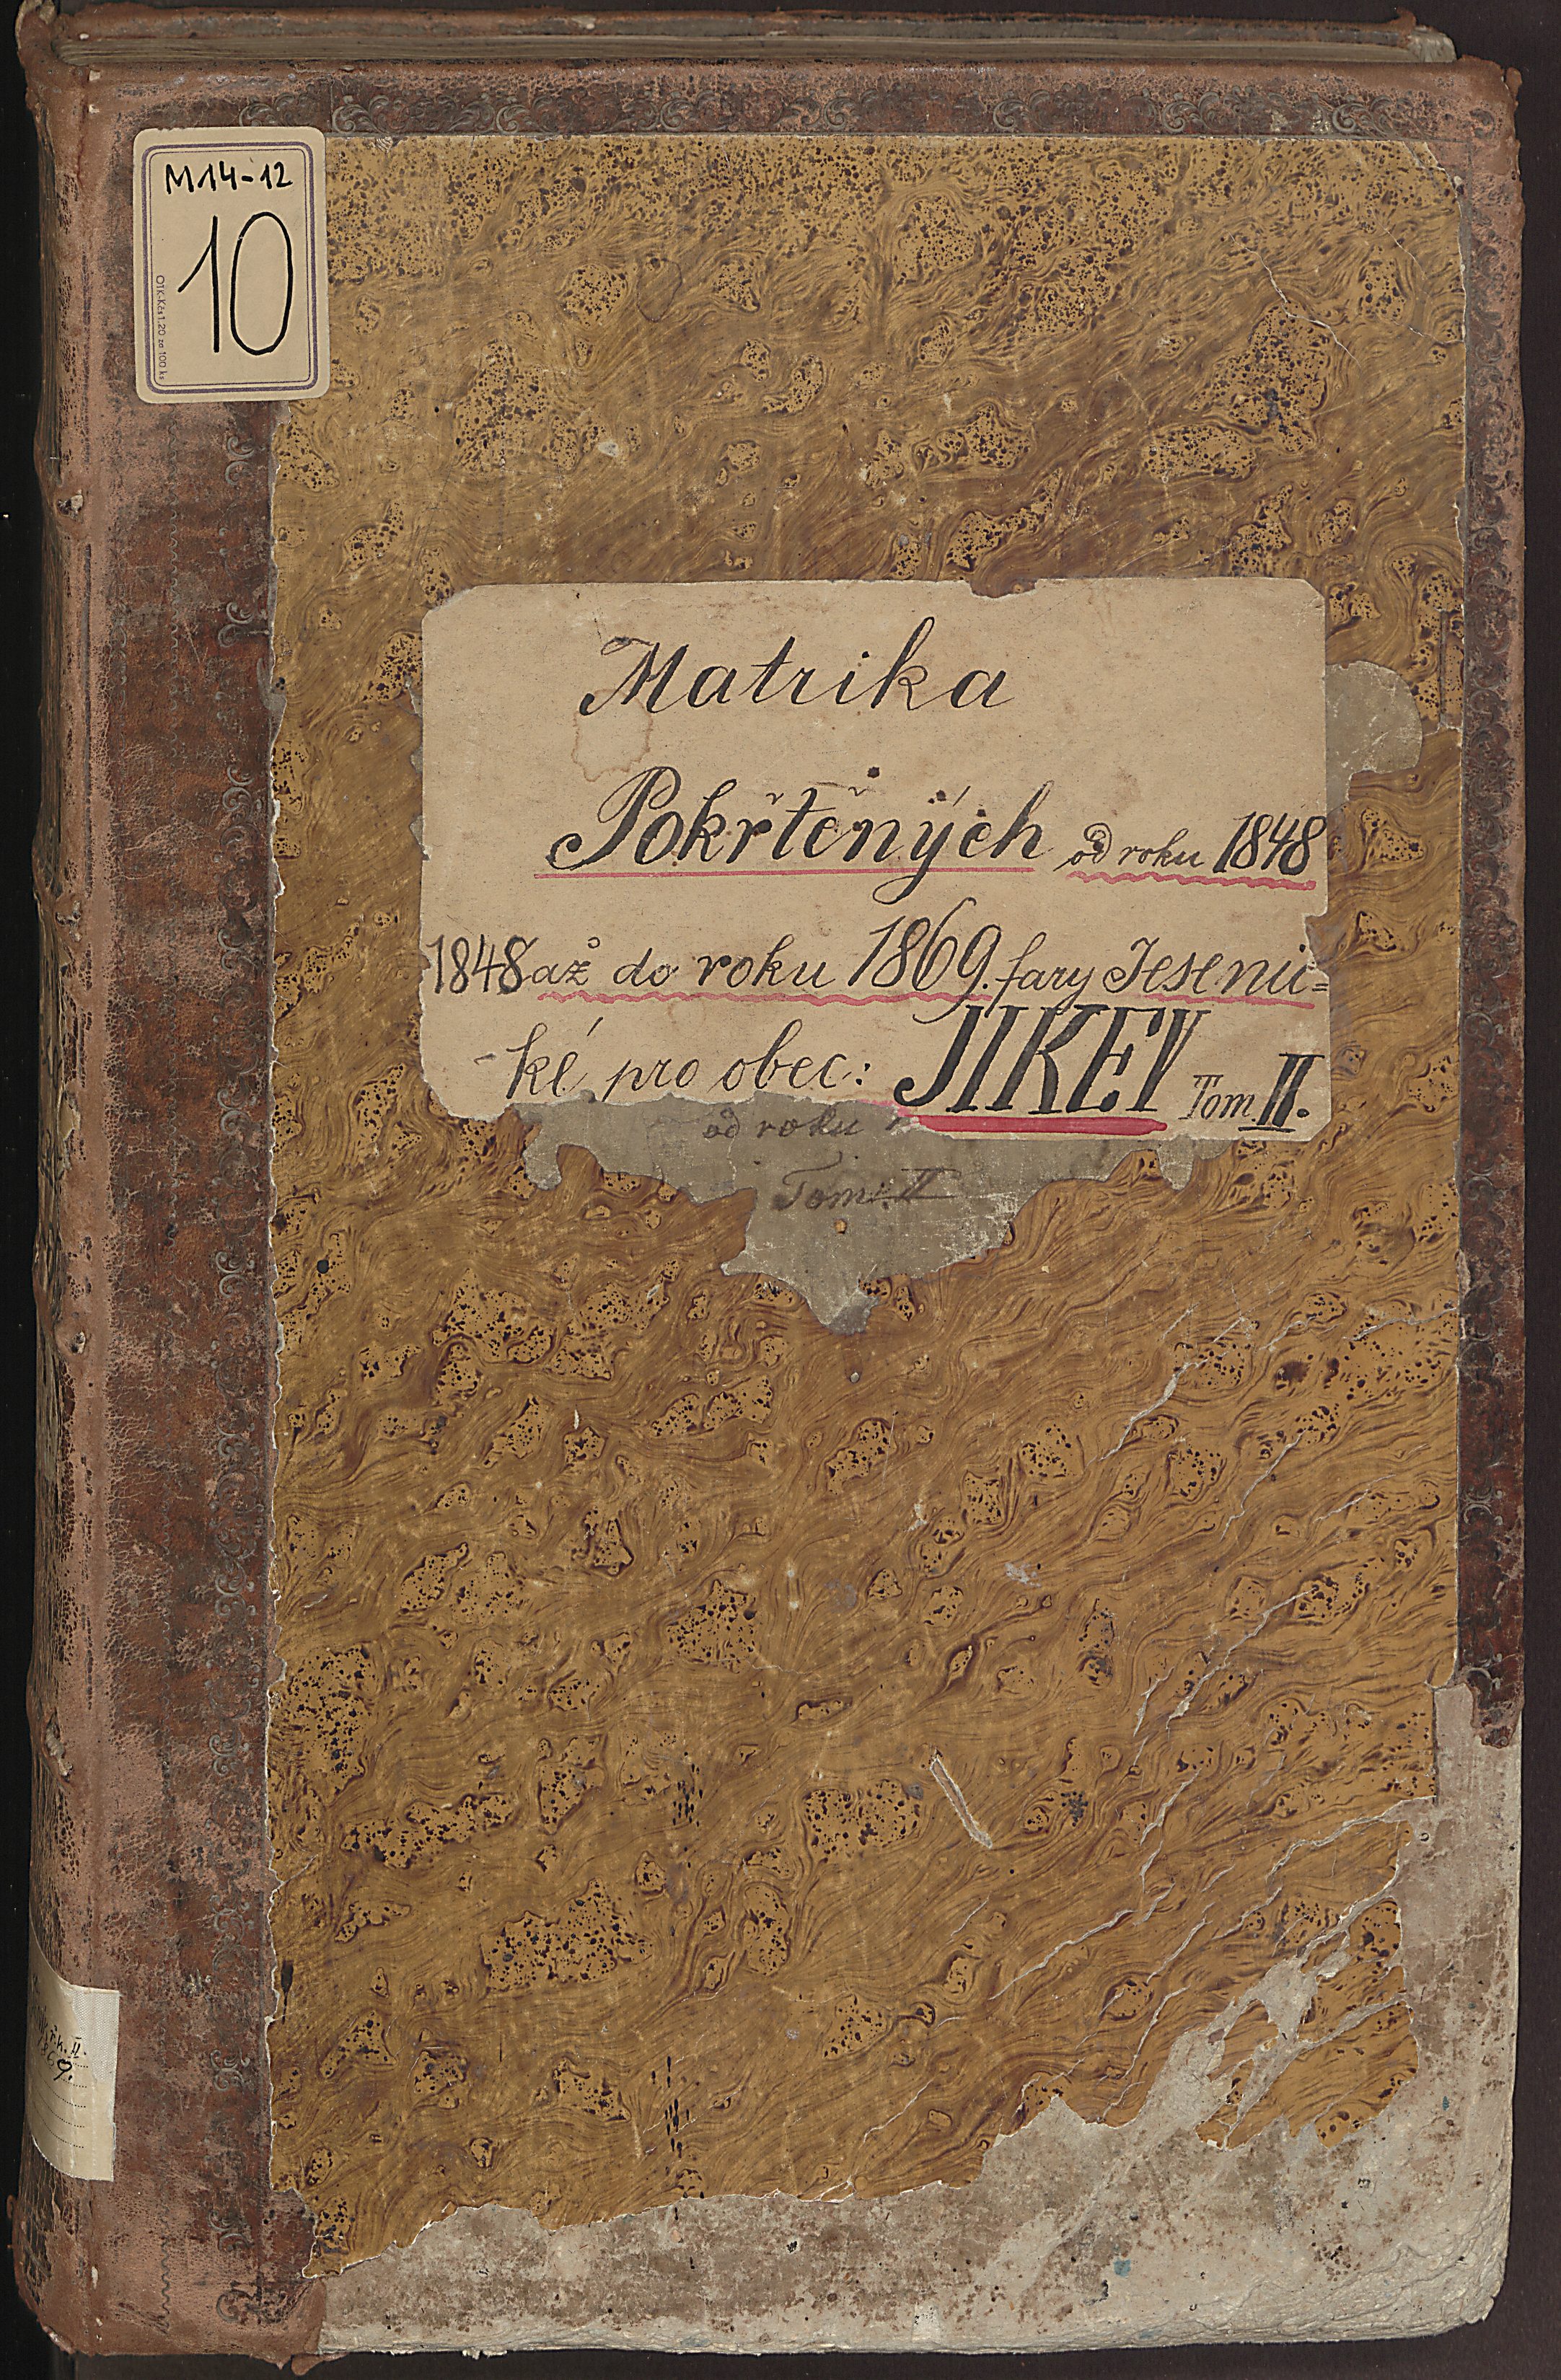 M14-12
10
01K-Kčs 1.20 za 100 ks
Matrika
Pokřtěných od roku 1848
1848 až do roku 1869. fary Jeseni=
-ké pro obec: JIKEV Tom. II.
od roku
Tom. II
ř.k. II.
1869.